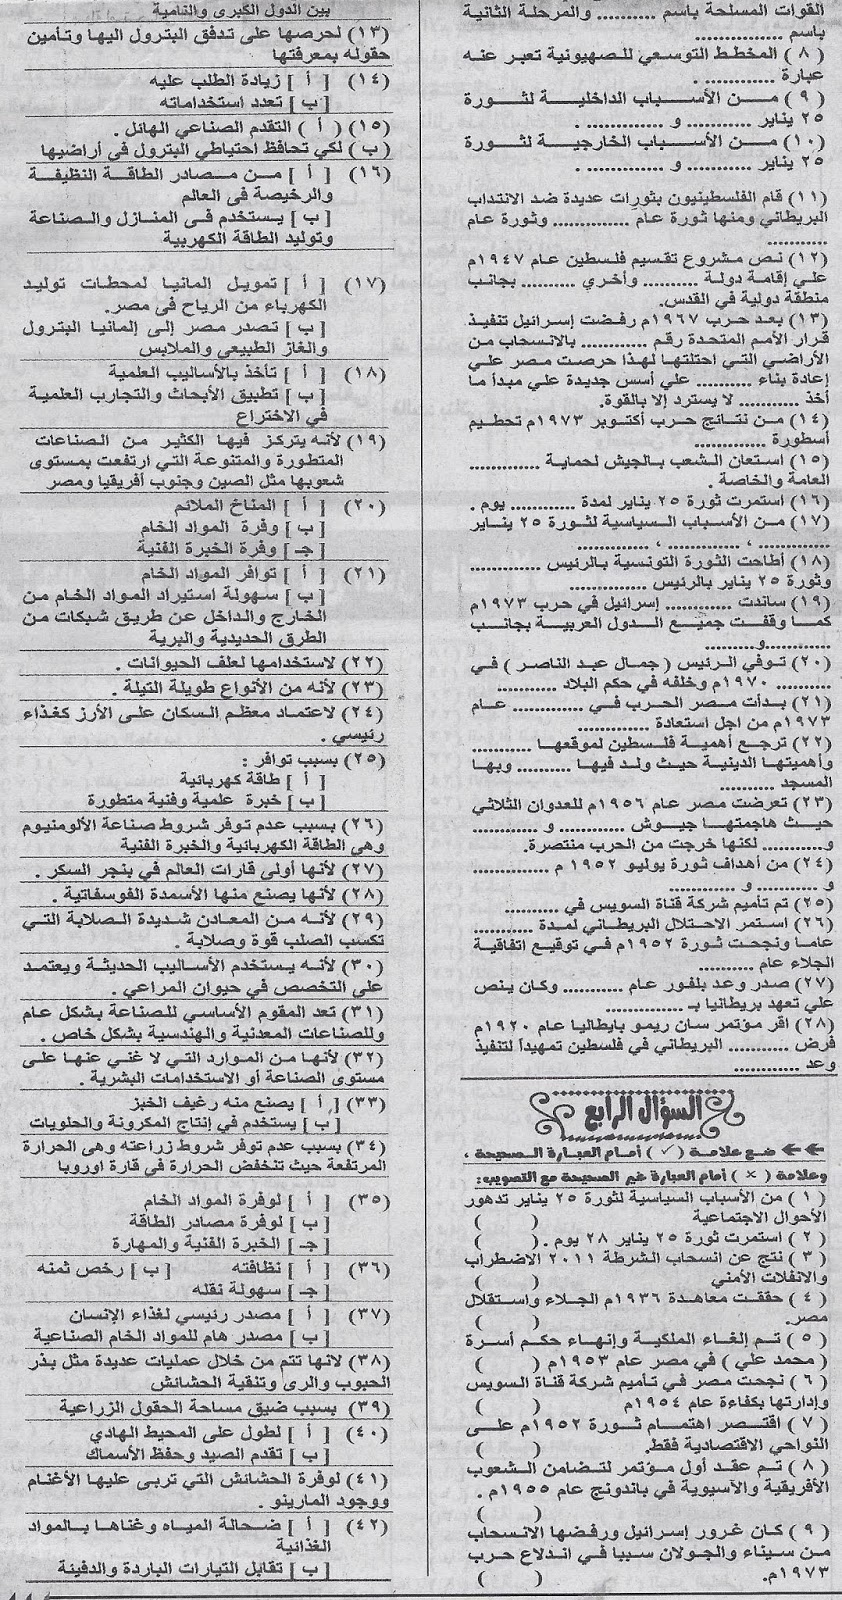 القوات المسلحة باسم ............ والمرحلة الثانية
باسم ................
( ٨ ) المخطط التوسعي للصهيونية تعبر عنه
عبارة ............. .
( ٩ ) من الأسباب الداخلية لثورة
٢٥ يناير ............ و ............. .
(١٠) من الأسباب الخارجية لثورة
٢٥ يناير ............ و ............. .
(١١) قام الفلسطينيون بثورات عديدة ضد الانتداب
البريطاني ومنها ثورة عام ............ وثورة عام
............
(١٢) نص مشروع تقسيم فلسطين عام ١٩٤٧م
علي إقامة دولة .......... وأخري .......... بجانب
منطقة دولية في القدس.
(١٣) بعد حرب ١٩٦٧م رفضت إسرائيل تنفيذ
قرار الأمم المتحدة رقم ............ بالانسحاب من
الأراضي التي احتلتها لهذا حرصت مصر علي
إعادة بناء .......... علي أسس جديدة علي مبدأ ما
أخذ ............ لا يسترد إلا بالقوة.
(١٤) من نتائج حرب أكتوبر ١٩٧٣م تحطيم
أسطورة ..............
(١٥) استعان الشعب بالجيش لحماية ............
العامة والخاصة .
(١٦) استمرت ثورة ٢٥ يناير لمدة ............ يوم .
(١٧) من الأسباب السياسية لثورة ٢٥ يناير
............ ، ............ ، ............
(١٨) أطاحت الثورة التونسية بالرئيس ............
وثورة ٢٥ يناير بالرئيس ..............
(١٩) ساندت ............ إسرائيل في حرب ١٩٧٣م
كما وقفت جميع الدول العربية بجانب
............و............
(٢٠) توفي الرئيس ( جمال عبد الناصر ) في
.......... ١٩٧٠م وخلفه في حكم البلاد ............
(٢١) بدأت مصر الحرب في ............ عام
١٩٧٣م من اجل استعادة ............
(٢٢) ترجع أهمية فلسطين لموقعها ............
وأهميتها الدينية حيث ولد فيها .......... وبها
المسجد ............
(٢٣) تعرضت مصر عام ١٩٥٦م للعدوان الثلاثي
حيث هاجمتها جيوش ............ و ............
و............ لكنها خرجت من الحرب منتصرة.
(٢٤) من أهداف ثورة يوليو ١٩٥٢ م ............
و ............ و ............
(٢٥) تم تأميم شركة قناة السويس في ............
(٢٦) استمر الاحتلال البريطاني لمدة ............
عاما ونجحت ثورة ١٩٥٢م في توقيع اتفاقية
الجلاء عام ............
(٢٧) صدر وعد بلفور عام ............ وكان ينص
علي تعهد بريطانيا بـ ............
(٢٨) اقر مؤتمر سان ريمو بايطاليا عام ١٩٢٠م
فرض ............ البريطاني في فلسطين تمهيداً لتنفيذ
وعد ............
السؤال الرابع
ضع علامة ( ✓ ) أمام العبارة الصحيحة ،
وعلامة ( × ) أمام العبارة غير الصحيحة مع التصويب:
( ١ ) من الأسباب السياسية لثورة ٢٥ يناير تدهور
الأحوال الاجتماعية ( )
( ٢ ) استمرت ثورة ٢٥ يناير ٢٨ يوم . ( )
( ٣ ) نتج عن انسحاب الشرطة ٢٠١١ الاضطراب
والانفلات الأمني ( )
( ٤ ) حققت معاهدة ١٩٣٦م الجلاء واستقلال
مصر. ( )
( ٥ ) تم إلغاء الملكية وإنهاء حكم أسرة
( محمد علي ) في مصر عام ١٩٥٣م ( )
( ٦ ) نجحت مصر في تأميم شركة قناة السويس
وإدارتها بكفاءة عام ١٩٥٤م ( )
( ٧ ) اقتصر اهتمام ثورة ١٩٥٢م على
النواحي الاقتصادية فقط. ( )
( ٨ ) تم عقد أول مؤتمر لتضامن الشعوب
الأفريقية والآسيوية في باندونج عام ١٩٥٥م .
( )
( ٩ ) كان غرور إسرائيل ورفضها الانسحاب
من سيناء والجولان سببا في اندلاع حرب
١٩٧٣م. ( )
بين الدول الكبرى والنامية
(١٣) لحرصها على تدفق البترول اليها وتأمين
حقوله بمعرفتها
(١٤) [ أ ] زيادة الطلب عليه
[ ب ] تعدد استخداماته
(١٥) ( أ ) التقدم الصناعي الهائل .
( ب ) لكي تحافظ احتياطي البترول فى أراضيها
(١٦) [ أ ] من مصادر الطاقة النظيفة
والرخيصة فى العالم
[ ب ] يستخدم فى المنازل والصناعة
وتوليد الطاقة الكهربية
(١٧) [ أ ] تمويل المانيا لمحطات توليد
الكهرباء من الرياح فى مصر.
[ ب ] تصدر مصر إلى إلمانيا البترول
والغاز الطبيعي والملابس
(١٨) [ أ ] تأخذ بالأساليب العلمية
[ ب ] تطبيق الأبحاث والتجارب العلمية
في الاختراع
(١٩) لأنه يتركز فيها الكثير من الصناعات
المتطورة والمتنوعة التي ارتفعت بمستوى
شعوبها مثل الصين وجنوب أفريقيا ومصر
(٢٠) [ أ ] المناخ الملائم
[ ب ] وفرة المواد الخام
[ جـ ] وفرة الخبرة الفنية
(٢١) [ أ ] توافر المواد الخام
[ ب ] سهولة استيراد المواد الخام من
الخارج والداخل عن طريق شبكات من
الطرق الحديدية والبرية
(٢٢) لاستخدامها لعلف الحيوانات .
(٢٣) لأنه من الأنواع طويلة التيلة .
(٢٤) لاعتماد معظم السكان على الأرز كغذاء
رئيسي .
(٢٥) بسبب توافر :
[ أ ] طاقة كهربائية
[ ب ] خبرة علمية وفنية متطورة
(٢٦) بسبب عدم توفر شروط صناعة الألومنيوم
وهى الطاقة الكهربائية والخبرة الفنية
(٢٧) لأنها أولى قارات العالم في بنجر السكر .
(٢٨) لأنها يصنع منها الأسمدة الفوسفاتية .
(٢٩) لأنه من المعادن شديدة الصلابة التي
تكسب الصلب قوة وصلابة .
(٣٠) لأنه يستخدم الأساليب الحديثة ويعتمد
على التخصص في حيوان المراعي .
(٣١) تعد المقوم الأساسي للصناعة بشكل عام
وللصناعات المعدنية والهندسية بشكل خاص .
(٣٢) لأنها من الموارد التي لا غني عنها على
مستوى الصناعة أو الاستخدامات البشرية .
(٣٣) [ أ ] يصنع منه رغيف الخبز
[ ب ] يستخدم في إنتاج المكرونة والحلويات
(٣٤) بسبب عدم توفر شروط زراعته وهى الحرارة
المرتفعة حيث تنخفض الحرارة في قارة اوروبا
(٣٥) [ أ ] لوفرة المواد الخام
[ ب ] لوفرة مصادر الطاقة
[ جـ ] الخبرة الفنية والمهارة
(٣٦) [ أ ] نظافته [ ب ] رخص ثمنه
[ جـ ] سهولة نقله
(٣٧) [ أ ] مصدر رئيسي لغذاء الإنسان
[ ب ] مصدر هام للمواد الخام الصناعية
(٣٨) لانها تتم من خلال عمليات عديدة مثل بذر
الحبوب والرى وتنقية الحشائش
(٣٩) بسبب ضيق مساحة الحقول الزراعية
(٤٠) [ أ ] لطول على المحيط الهادي
[ ب ] تقدم الصيد وحفظ الأسماك
(٤١) لوفرة الحشائش التي تربى عليها الأغنام
ووجود المارينو .
(٤٢) [ أ ] ضحالة المياه وغناها بالمواد
الغذائية
[ ب ] تقابل التيارات الباردة والدفيئة